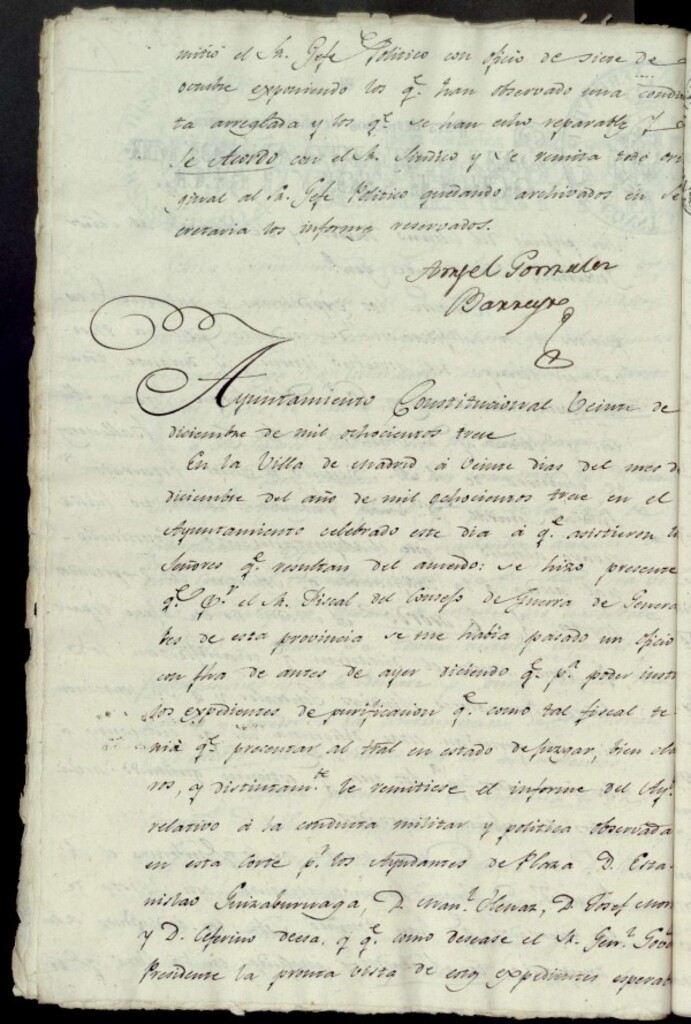 mitió el Sr. Gefe Político con oficio de siete de
octubre exponiendo los q.e han observado una conduc
ta arreglada y los q.e se han echo reparables y
Se Acordó con el Sr. Síndico y se remita todo ori
ginal al Sr. Gefe Político quedando archivados en Se
cretaria los informes reservados.
Angel Gonzalez
Barreyro
Ayuntamiento Constitucional Veinte de
diciembre de mil ochocientos trece
En la Villa de Madrid á veinte dias del mes d
diciembre del año de mil ochocientos trece en el
Ayuntamiento celebrado este dia á q.e asistieron l
Señores q.e resultan del acuerdo: se hizo presente
q.e p.r el Sr. Fiscal del Consejo de Guerra de Genera
les de esta provincia se me habia pasado un oficio
con fha de antes de ayer diciendo q.e p.a poder instr
los expedientes de purificacion q.e como tal fiscal te
nia q.e presentar al tral en estado de juzgar, bien cla
ros, y distintam.te le remitiese el informe del Ay.to
relativo á la conducta militar y politica observada
en esta corte p.r los Ayudantes de Plaza D. Esta
nislao Guizaburuaga, D. Man.l D. Josef
y D. Ceferino deesa, y q.e como desease el Sr. Gen.l Gov.r
Presidente la pronta vista de estos expedientes esperab